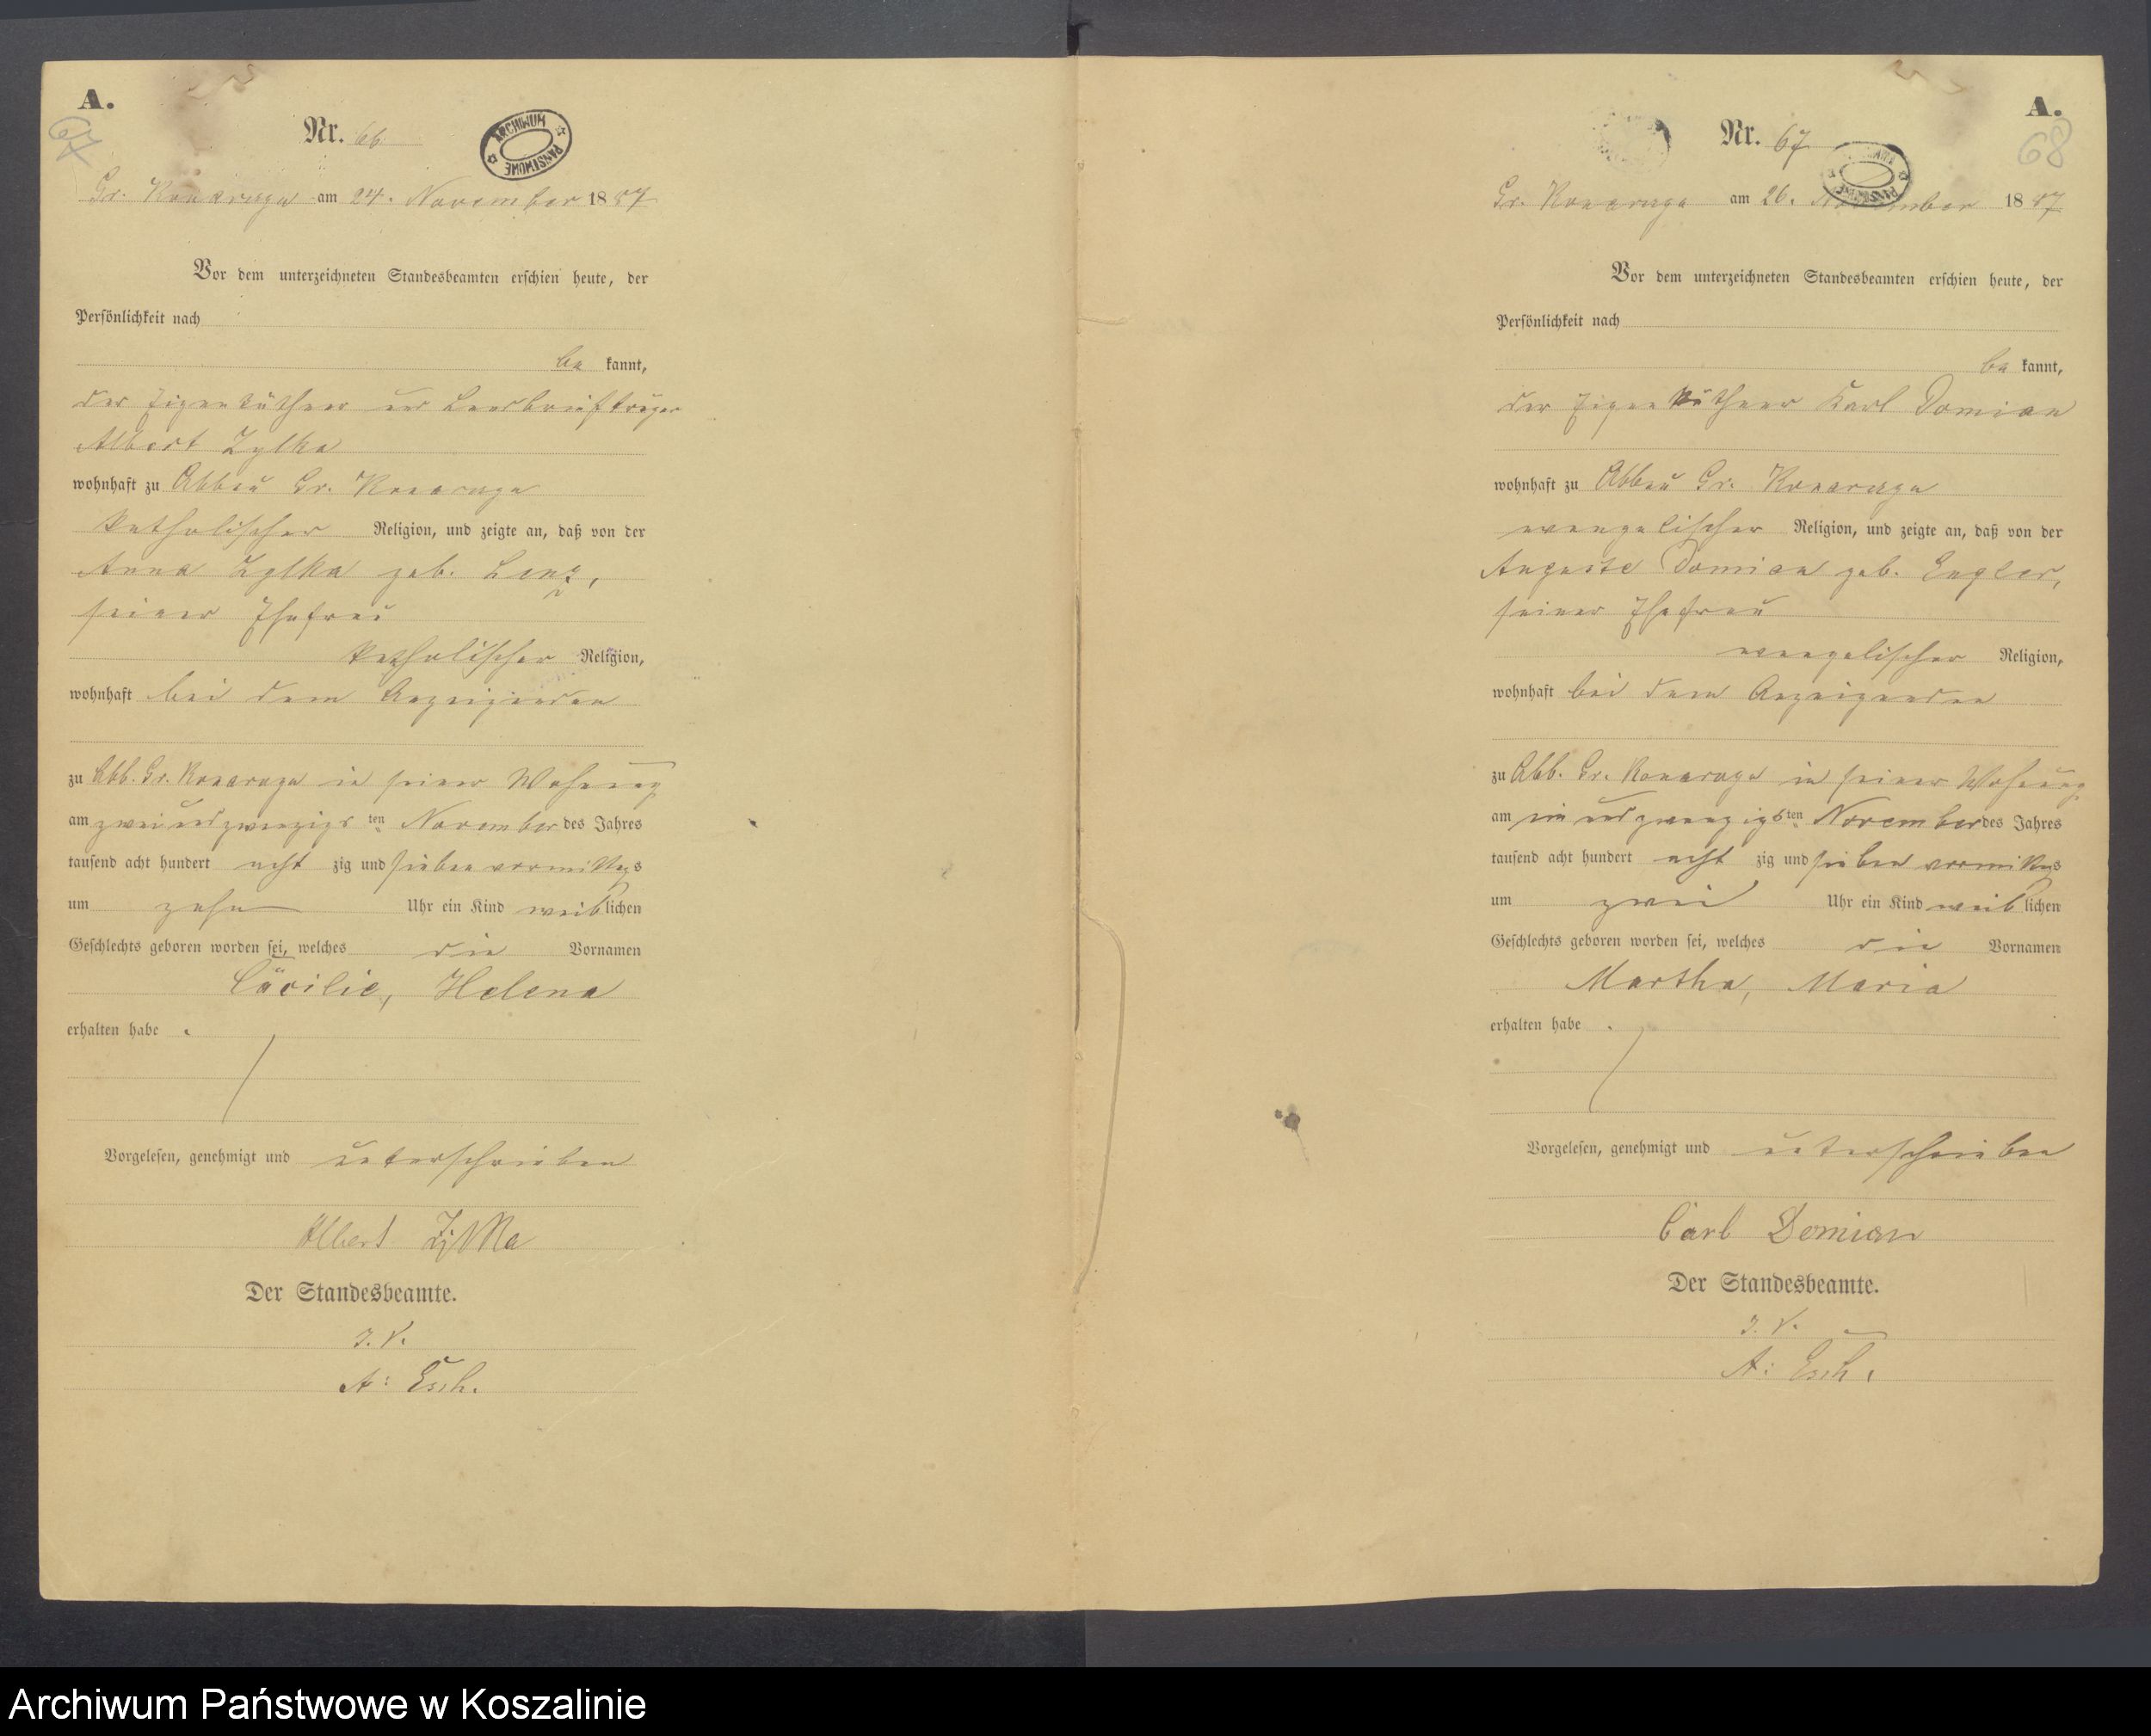 A.
67
Nr. 66
ARCHIWUM PAŃSTWOWE
Gr. Konarczyn am 24. November 1887
Vor dem unterzeichneten Standesbeamten erschien heute, der
Persönlichkeit nach
be kannt,
der Eigenkäthner und Landbriefträger
Albert Zylka
wohnhaft zu Abbau Gr. Konarczyn
katholischer Religion, und zeigte an, daß von der
Anna Zylka geb.
seiner Ehefrau
katholischer Religion,
wohnhaft bei dem Anzeigenden
zu Abb. Gr. Konarczyn in seiner Wohnung
am zweiundzwanzigsten November des Jahres
tausend acht hundert acht zig und sieben vormittags
um zehn Uhr ein Kind weiblichen
Geschlechts geboren worden sei, welches die Vornamen
Cäcilie, Helena
erhalten habe .
Vorgelesen, genehmigt und unterschrieben
Albert Zylka
Der Standesbeamte.
I. V.
A: Esch.
A.
68
Nr. 67
Gr. Konarczyn am 26. November 1887
Vor dem unterzeichneten Standesbeamten erschien heute, der
Persönlichkeit nach
be kannt,
der Eigenkäthner Karl Domian
wohnhaft zu Abbau Gr. Konarczyn
evangelischer Religion, und zeigte an, daß von der
Auguste Domian geb. Engler,
seiner Ehefrau
evangelischer Religion,
wohnhaft bei dem Anzeigenden
zu Abb. Gr. Konarczyn in seiner Wohnung
am ein und zwanzigsten November des Jahres
tausend acht hundert acht zig und sieben vormittags
um zwei Uhr ein Kind weiblichen
Geschlechts geboren worden sei, welches die Vornamen
Martha, Maria
erhalten habe .
Vorgelesen, genehmigt und unterschrieben
Carl Domian
Der Standesbeamte.
I. V.
A: Esch.
Archiwum Państwowe w Koszalinie